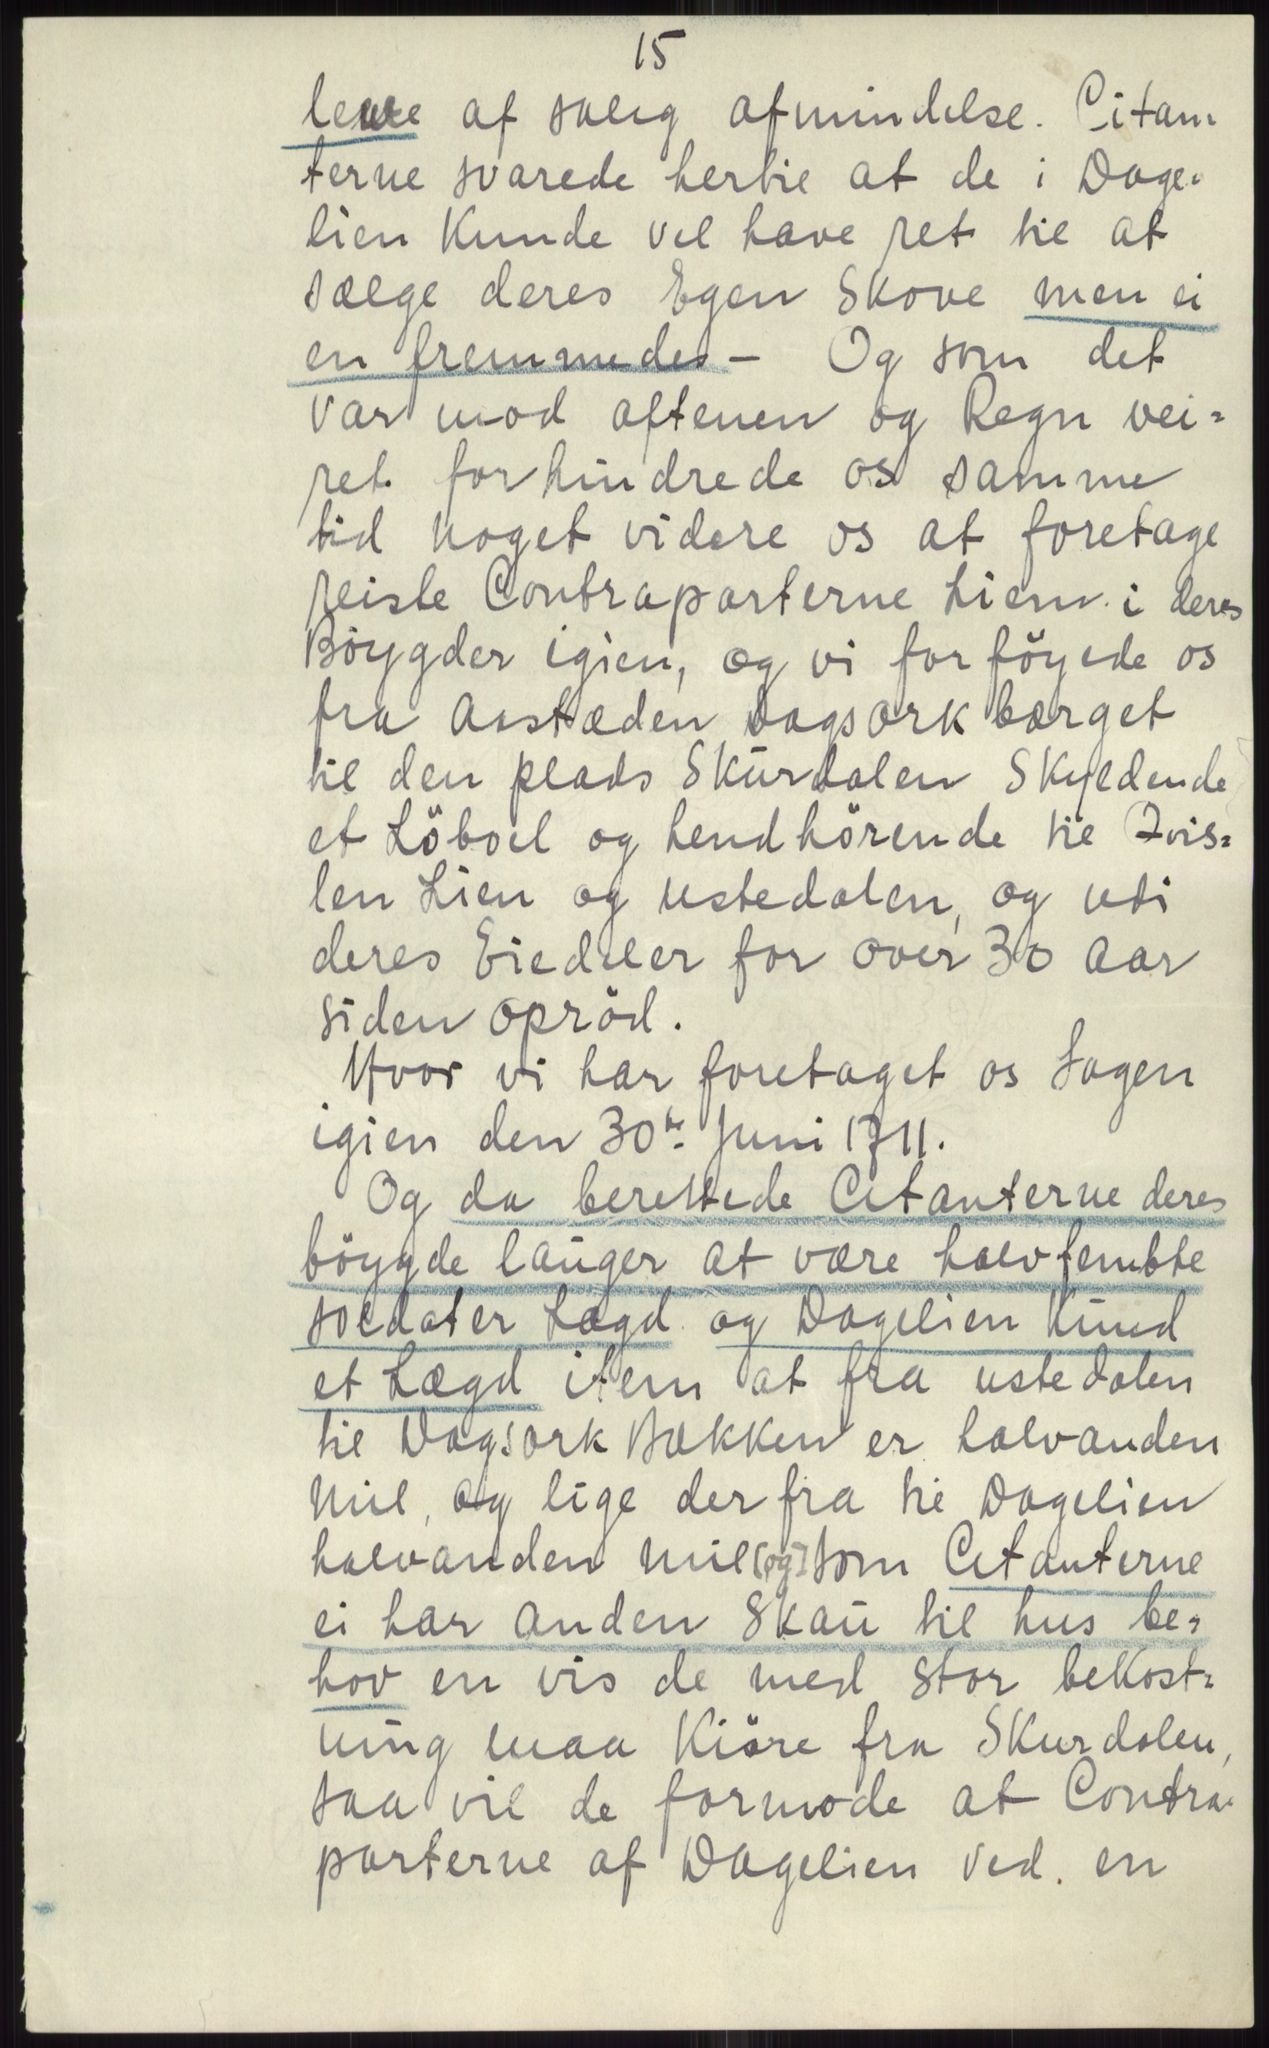 15
leuve af salig afmindelse. Citan
terne svarede hertil at de i Dage-
lien Kunde vel have ret til at
sælge deres Egen Skove men ei
en fremmedes - Og som det
var mod aftenen og Regn vei=
ret forhindrede os samme
tid noget videre os at foretage
reiste Contraparterne hiem i deres
Böygder igien, og vi forföyede os
fra Aastæden Dagsork bærget
til den plads Skürdalen Skyldende
et Löboel og hendhörende til Tvis=
len Lien og Ustedalen, og udi
deres Eiedeler for over 30 Aar
siden opröd.
Hvor vi har foretaget os Sagen
igien den 30te Juni 1711.
Og da berettede Citanterne deres
böygde lauger at være halvfembte
soldater Lægd og Dagelien Kund
et Lægd item at fra ustedalen
til Dagsork Bækken er halvanden
Mil, og lige der fra til Dagelien
halvanden Mil [og] som Citanterne
ei har anden Skaü til hus be=
hov en vis de med stor bekost=
ning maa Kiöre fra Skurdalen,
saa vil de formode at Contra-
parterne af Dagelien ved. en